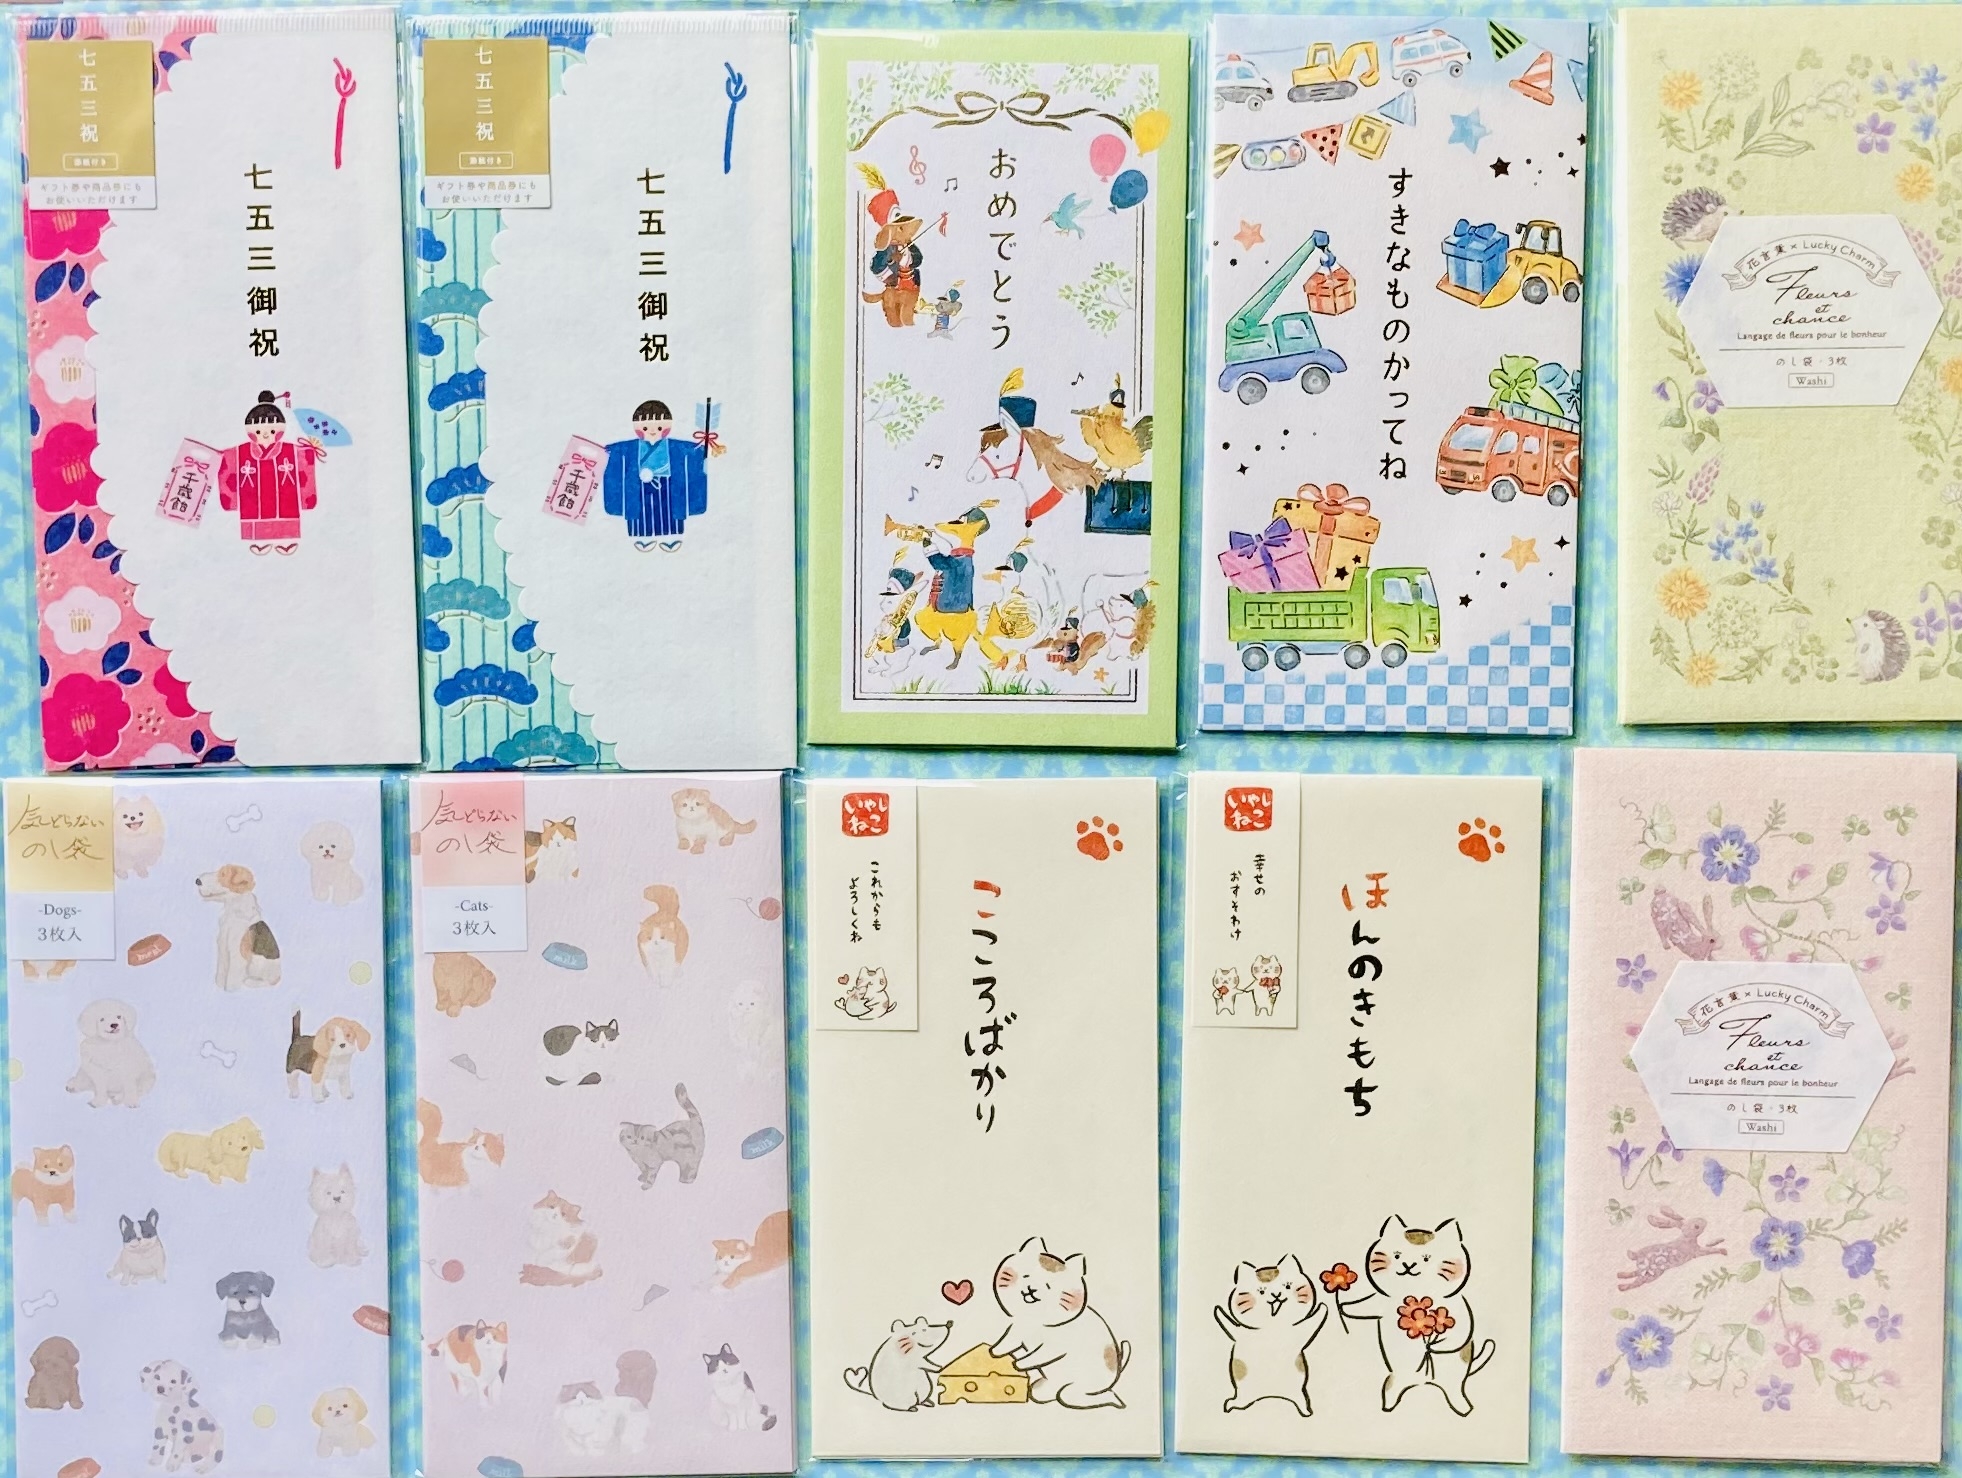 七五三祝
懸紙付き
ギフト券や商品券にも
お使いいただけます
七五三御祝
千歳飴
七五三祝
懸紙付き
ギフト券や商品券にも
お使いいただけます
七五三御祝
千歳飴
おめでとう
すきなものかってね
花言葉×Lucky Charm
Fleurs
et
chance
Langage de fleurs pour le bonheur
のし袋・3枚
Washi
気どらない
のし袋
-Dogs-
3枚入
meal
気どらない
のし袋
-Cats-
3枚入
milk
milk
いやし
ねこ
これからも
よろしくね
こころばかり
いやし
ねこ
幸せの
おすそわけ
ほんのきもち
花言葉×Lucky Charm
Fleurs
et
chance
Langage de fleurs pour le bonheur
のし袋・3枚
Washi